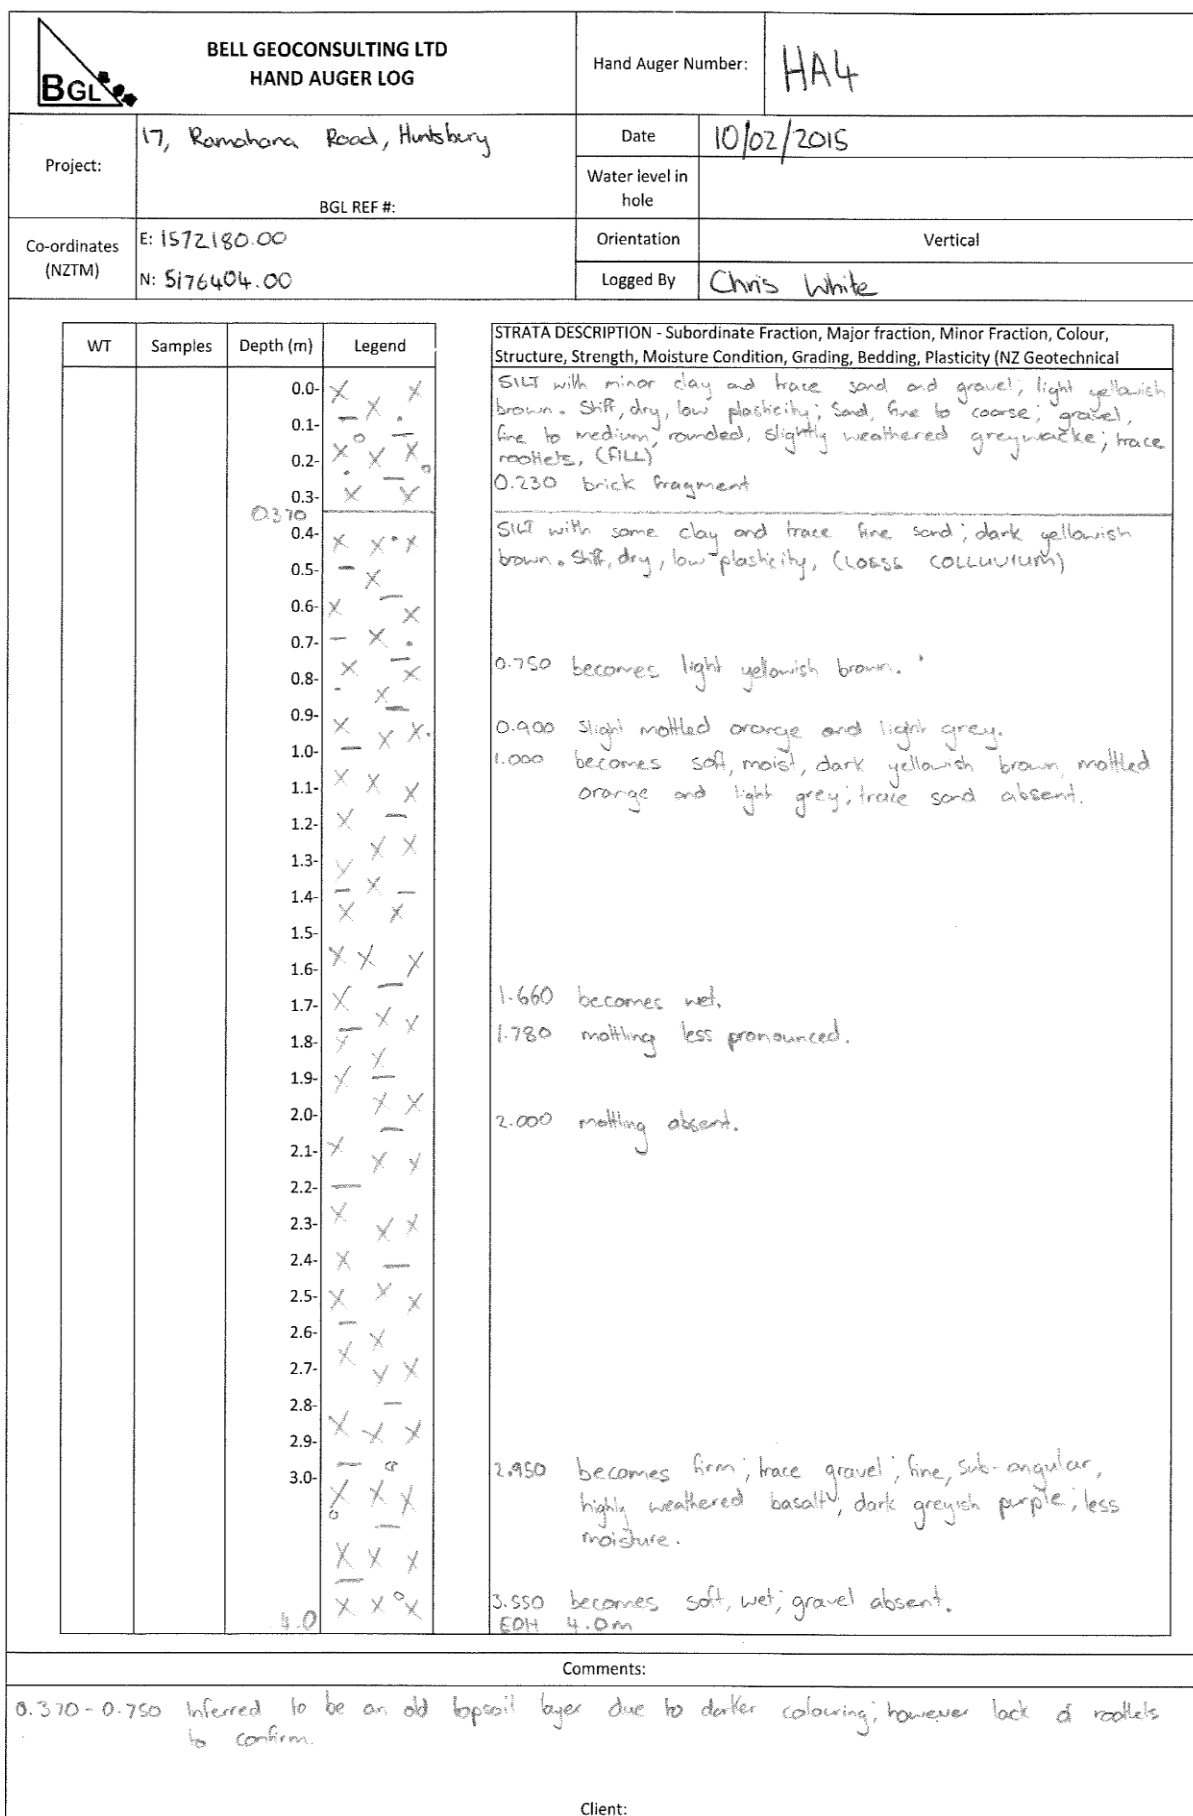 BGL
BELL GEOCONSULTING LTD
HAND AUGER LOG
Hand Auger Number:
HA4
Project:
17, Ramahana Road, Huntsbury
BGL REF #:
Date
10/02/2015
Water level in
hole
Co-ordinates
(NZTM)
E: 1572180.00
N: 5176404.00
Orientation
Vertical
Logged By
Chris White
WT
Samples
Depth (m)
Legend
STRATA DESCRIPTION - Subordinate Fraction, Major fraction, Minor Fraction, Colour,
Structure, Strength, Moisture Condition, Grading, Bedding, Plasticity (NZ Geotechnical
0.0-
0.1-
0.2-
0.3-
0.370
0.4-
0.5-
0.6-
0.7-
0.8-
0.9-
1.0-
1.1-
1.2-
1.3-
1.4-
1.5-
1.6-
1.7-
1.8-
1.9-
2.0-
2.1-
2.2-
2.3-
2.4-
2.5-
2.6-
2.7-
2.8-
2.9-
3.0-
4.0
SILT with minor clay and trace sand and gravel; light yellowish
brown. Stiff, dry, low plasticity; Sand, fine to coarse; gravel,
fine to medium, rounded, slightly weathered greywacke; trace
rootlets, (FILL)
0.230 brick fragment
SILT with some clay and trace fine sand; dark yellowish
brown. Stiff, dry, low plasticity, (LOESS COLLUVIUM)
0.750 becomes light yelowish brown.
0.900 slight mottled orange and light grey.
1.000 becomes soft, moist, dark yellowish brown mottled
orange and light grey; trace sand absent.
1.660 becomes wet.
1.780 mottling less pronounced.
2.000 mottling absent.
2.950 becomes firm; trace gravel; fine, sub-angular,
highly weathered basalt, dark greyish purple; less
moisture.
3.550 becomes soft, wet; gravel absent.
EOH 4.0m
Comments:
0.370-0.750 Inferred to be an old topsoil layer due to darker colouring; however lack of rootlets
to confirm.
Client: